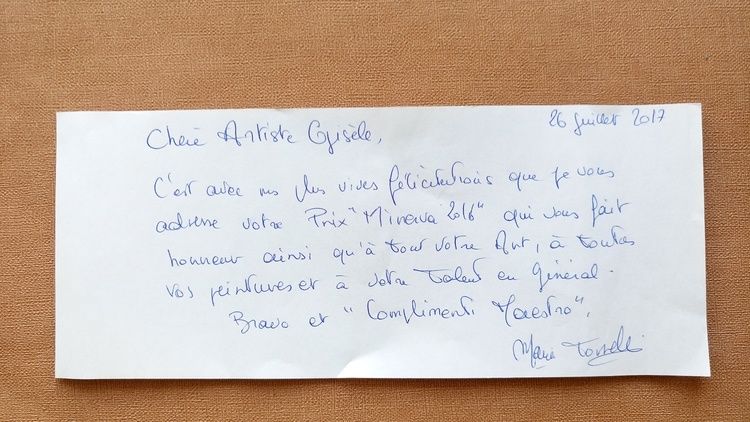 26 Juillet 2017
Chère Artiste Gisèle,
C'est avec mes plus vives félicitations que je vous
adresse votre Prix "Minerva 2016" qui vous fait
honneur ainsi qu'à tout votre Art, à toutes
vos peintures et à votre Talent en Général.
Bravo et "Complimenti Maestro".
Maria